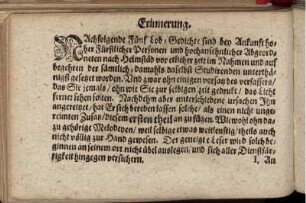 Erinnerung.
NAchfolgende Fünf Lob-Gedichte sind bey Ankunft ho-
her Fürstlicher Personen und hochansehnlicher Abgeord-
neten nach Helmstäd vor etlicher zeit im Nahmen und auf
begehren der sämtlich damahls daselbst Studirenden unterthä-
nigst gesetzet worden. Und zwar ohn einigen vorsatz des verfassers/
das Sie jemals/ ohn wie Sie zur selbigen zeit gedrukt/ das Licht
ferner sehen solten. Nachdehm aber unterschiedene ursachen Ihn
angereitzet/ hat Er sich bereden lassen solche/ als einen nicht unge-
reimten Zusatz/ diesem ersten theil an zu fügen. Wiewohl ohn da-
zu gehörige Melodeyen/ weil selbige etwas weitleuftig/ theils auch
nicht völlig zur Hand gewesen. Der geneigte Leser wird solch be-
ginnen an seinem ort nicht übel auslegen/ und sich aller Dienstfär-
tigkeit hingegen versichern.
I. An